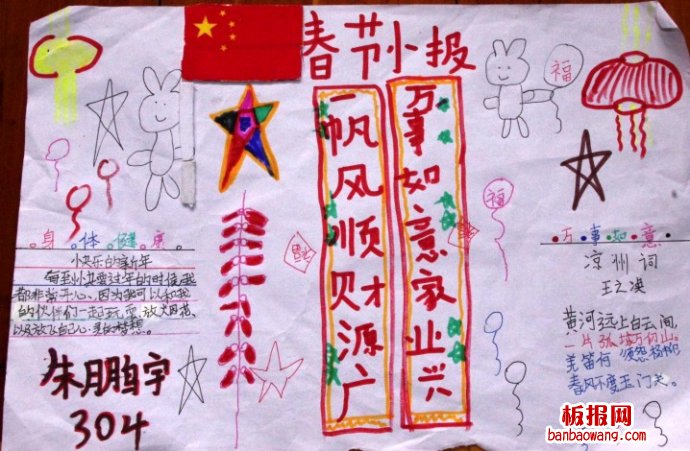 春节小报
福
万事如意家业兴
一帆风顺财源广
福
身体健康
快乐的新年
每到 要过年的时候,我
都非常开心、因为我可以和我
的伙伴们一起玩耍、放 花、
以及放飞自己心灵的梦想。
朱鹏宇
304
万事如意
凉州词
王之涣
黄河远上白云间,
一片孤城万仞山。
羌笛何须怨杨柳
春风不度玉门关。
板报网
banbaowang.com